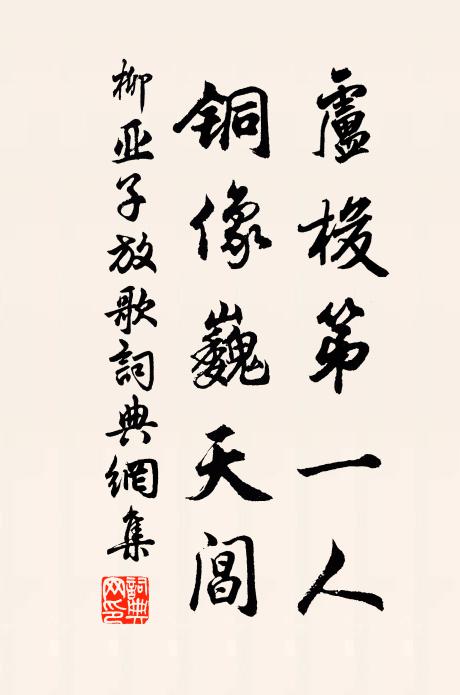 盧梭第一人
铜像巍天阊
柳亚子放歌詞典網集
詞典网印